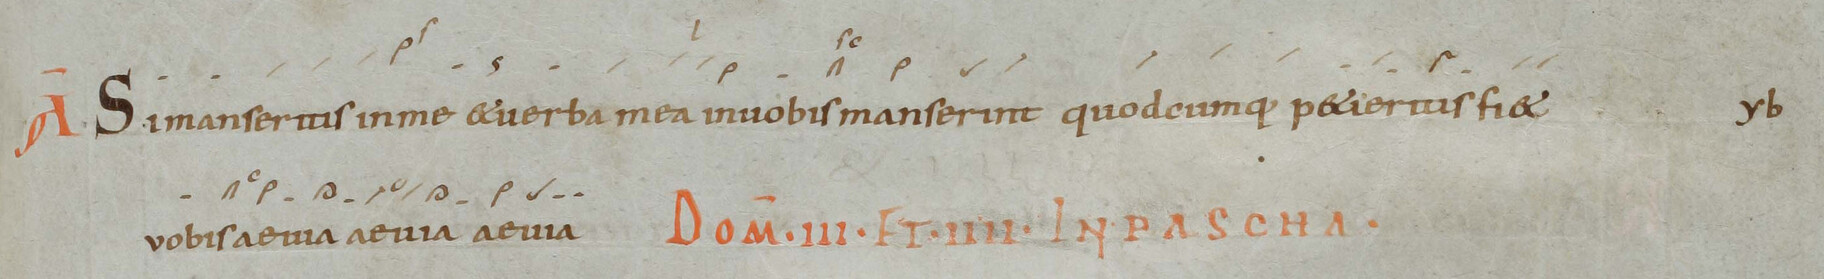 A̅ Simanseritis inme &uerba mea inuobis manserint quodcumq; p&ieritis fi& yb
vobis aeuia aeuia aeuia DOM̅·III·ET·IIII·INPASCHA·